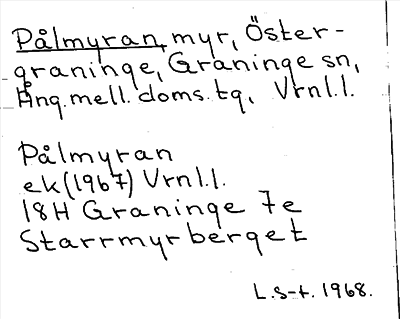 Pålmyran, myr, Öster-
graninge, Graninge sn,
Ång. mell. doms. tg. Vrnl.l.
Pålmyran
ek (1967) Vrnl.l.
18H Graninge 7e
Starrmyrberget
L.S-t. 1968.